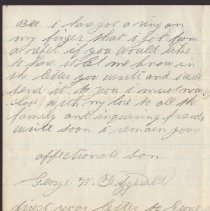 Bll i have got a ring on
my finger that i got from
a rebel if you would like
to have it let me know in
the letter you write and i will
send it to you i must now
close with my love to all the
family and inquiring friends
write soon i remain your
affectionate son
George W. Fitzgerald
direct your letter to